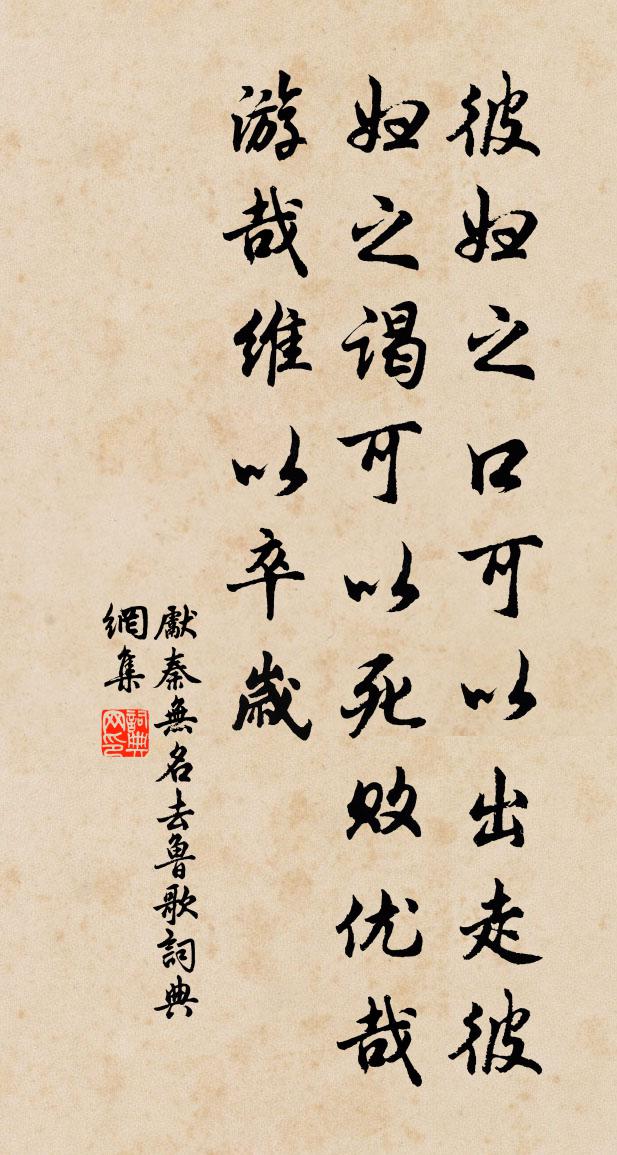 彼妇之口可以出走彼
妇之谒可以死败优哉
游哉维以卒歲
獻秦無名去魯歌詞典
網集
詞典
网印